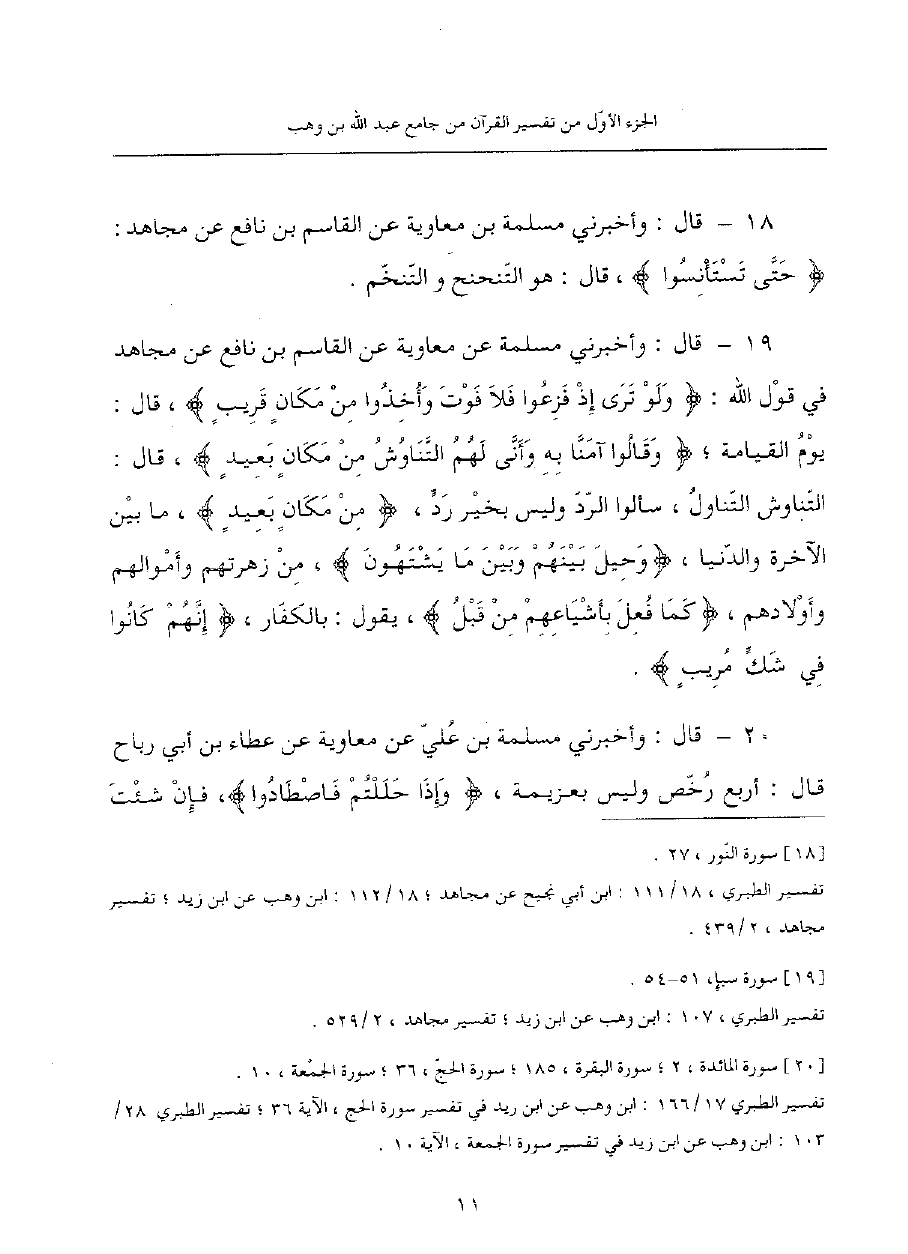 الجزء الأوّل من تفسير القرآن من جامع عبد الله بن وهب
١٨ – قال : وأخبرني مسلمة بن معاوية عن القاسم بن نافع عن مجاهد :
﴿ حَتَّى تَسْتَأْنِسُوا ﴾ ، قال : هو التّنحنح و التّنخّم .
١٩ – قال : وأخبرني مسلمة عن معاوية عن القاسم بن نافع عن مجاهد
في قوْل الله : ﴿ وَلَوْ تَرَى إِذْ فَزِعُوا فَلاَ فَوْتَ وَأُخِذُوا مِنْ مَكَانٍ قَرِيبٍ ﴾ ، قال :
يوْمُ القيامة ؛ ﴿ وَقَالُوا آمَنَّا بِهِ وَأَنَّى لَهُمُ التَّنَاوُشُ مِنْ مَكَانٍ بَعِيدٍ ﴾ ، قال :
التّناوش التّناولُ ، سألوا الرّدّ وليس بخيْر ردٍّ ، ﴿ مِنْ مَكَانٍ بَعِيدٍ ﴾ ، ما بيْن
الآخرة والدّنيا ، ﴿ وَحِيلَ بَيْنَهُمْ وَبَيْنَ مَا يَشْتَهُونَ ﴾ ، منْ زهرتهم وأمْوالهم
وأوْلادهم ، ﴿ كَمَا فُعِلَ بِأَشْيَاعِهِمْ مِنْ قَبْلُ ﴾ ، يقول : بالكفّار ، ﴿ إِنَّهُمْ كَانُوا
فِي شَكٍّ مُرِيبٍ ﴾ .
٢٠ – قال : وأخبرني مسلمة بن عُليّ عن معاوية عن عطاء بن أبي رباح
قال : أربع رُخّص وليس بعزيمة ، ﴿ وَإِذَا حَلَلْتُمْ فَاصْطَادُوا ﴾، فإنْ شئْت
[١٨] سورة النّور ، ٢٧ .
تفسير الطبري ، ١٨/ ١١١ : ابن أبي نجيح عن مجاهد ؛ ١٨/ ١١٢ : ابن وهب عن ابن زيد ؛ تفسير
مجاهد ، ٢/ ٤٣٩ .
[١٩] سورة سبإ، ٥١–٥٤ .
تفسير الطبري ، ١٠٧ : ابن وهب عن ابن زيد ؛ تفسير مجاهد ، ٢/ ٥٢٩ .
[٢٠] سورة المائدة ، ٢ ؛ سورة البقرة ، ١٨٥ ؛ سورة الحجّ ، ٣٦ ؛ سورة الجمْعة ، ١٠ .
تفسير الطبري ١٧/ ١٦٦ : ابن وهب عن ابن زيد في تفسير سورة الحج ، الآية ٣٦ ؛ تفسير الطبري ٢٨/
١٠٣ : ابن وهب عن ابن زيد في تفسير سورة الجمعة ، الآية ١٠ .
١١